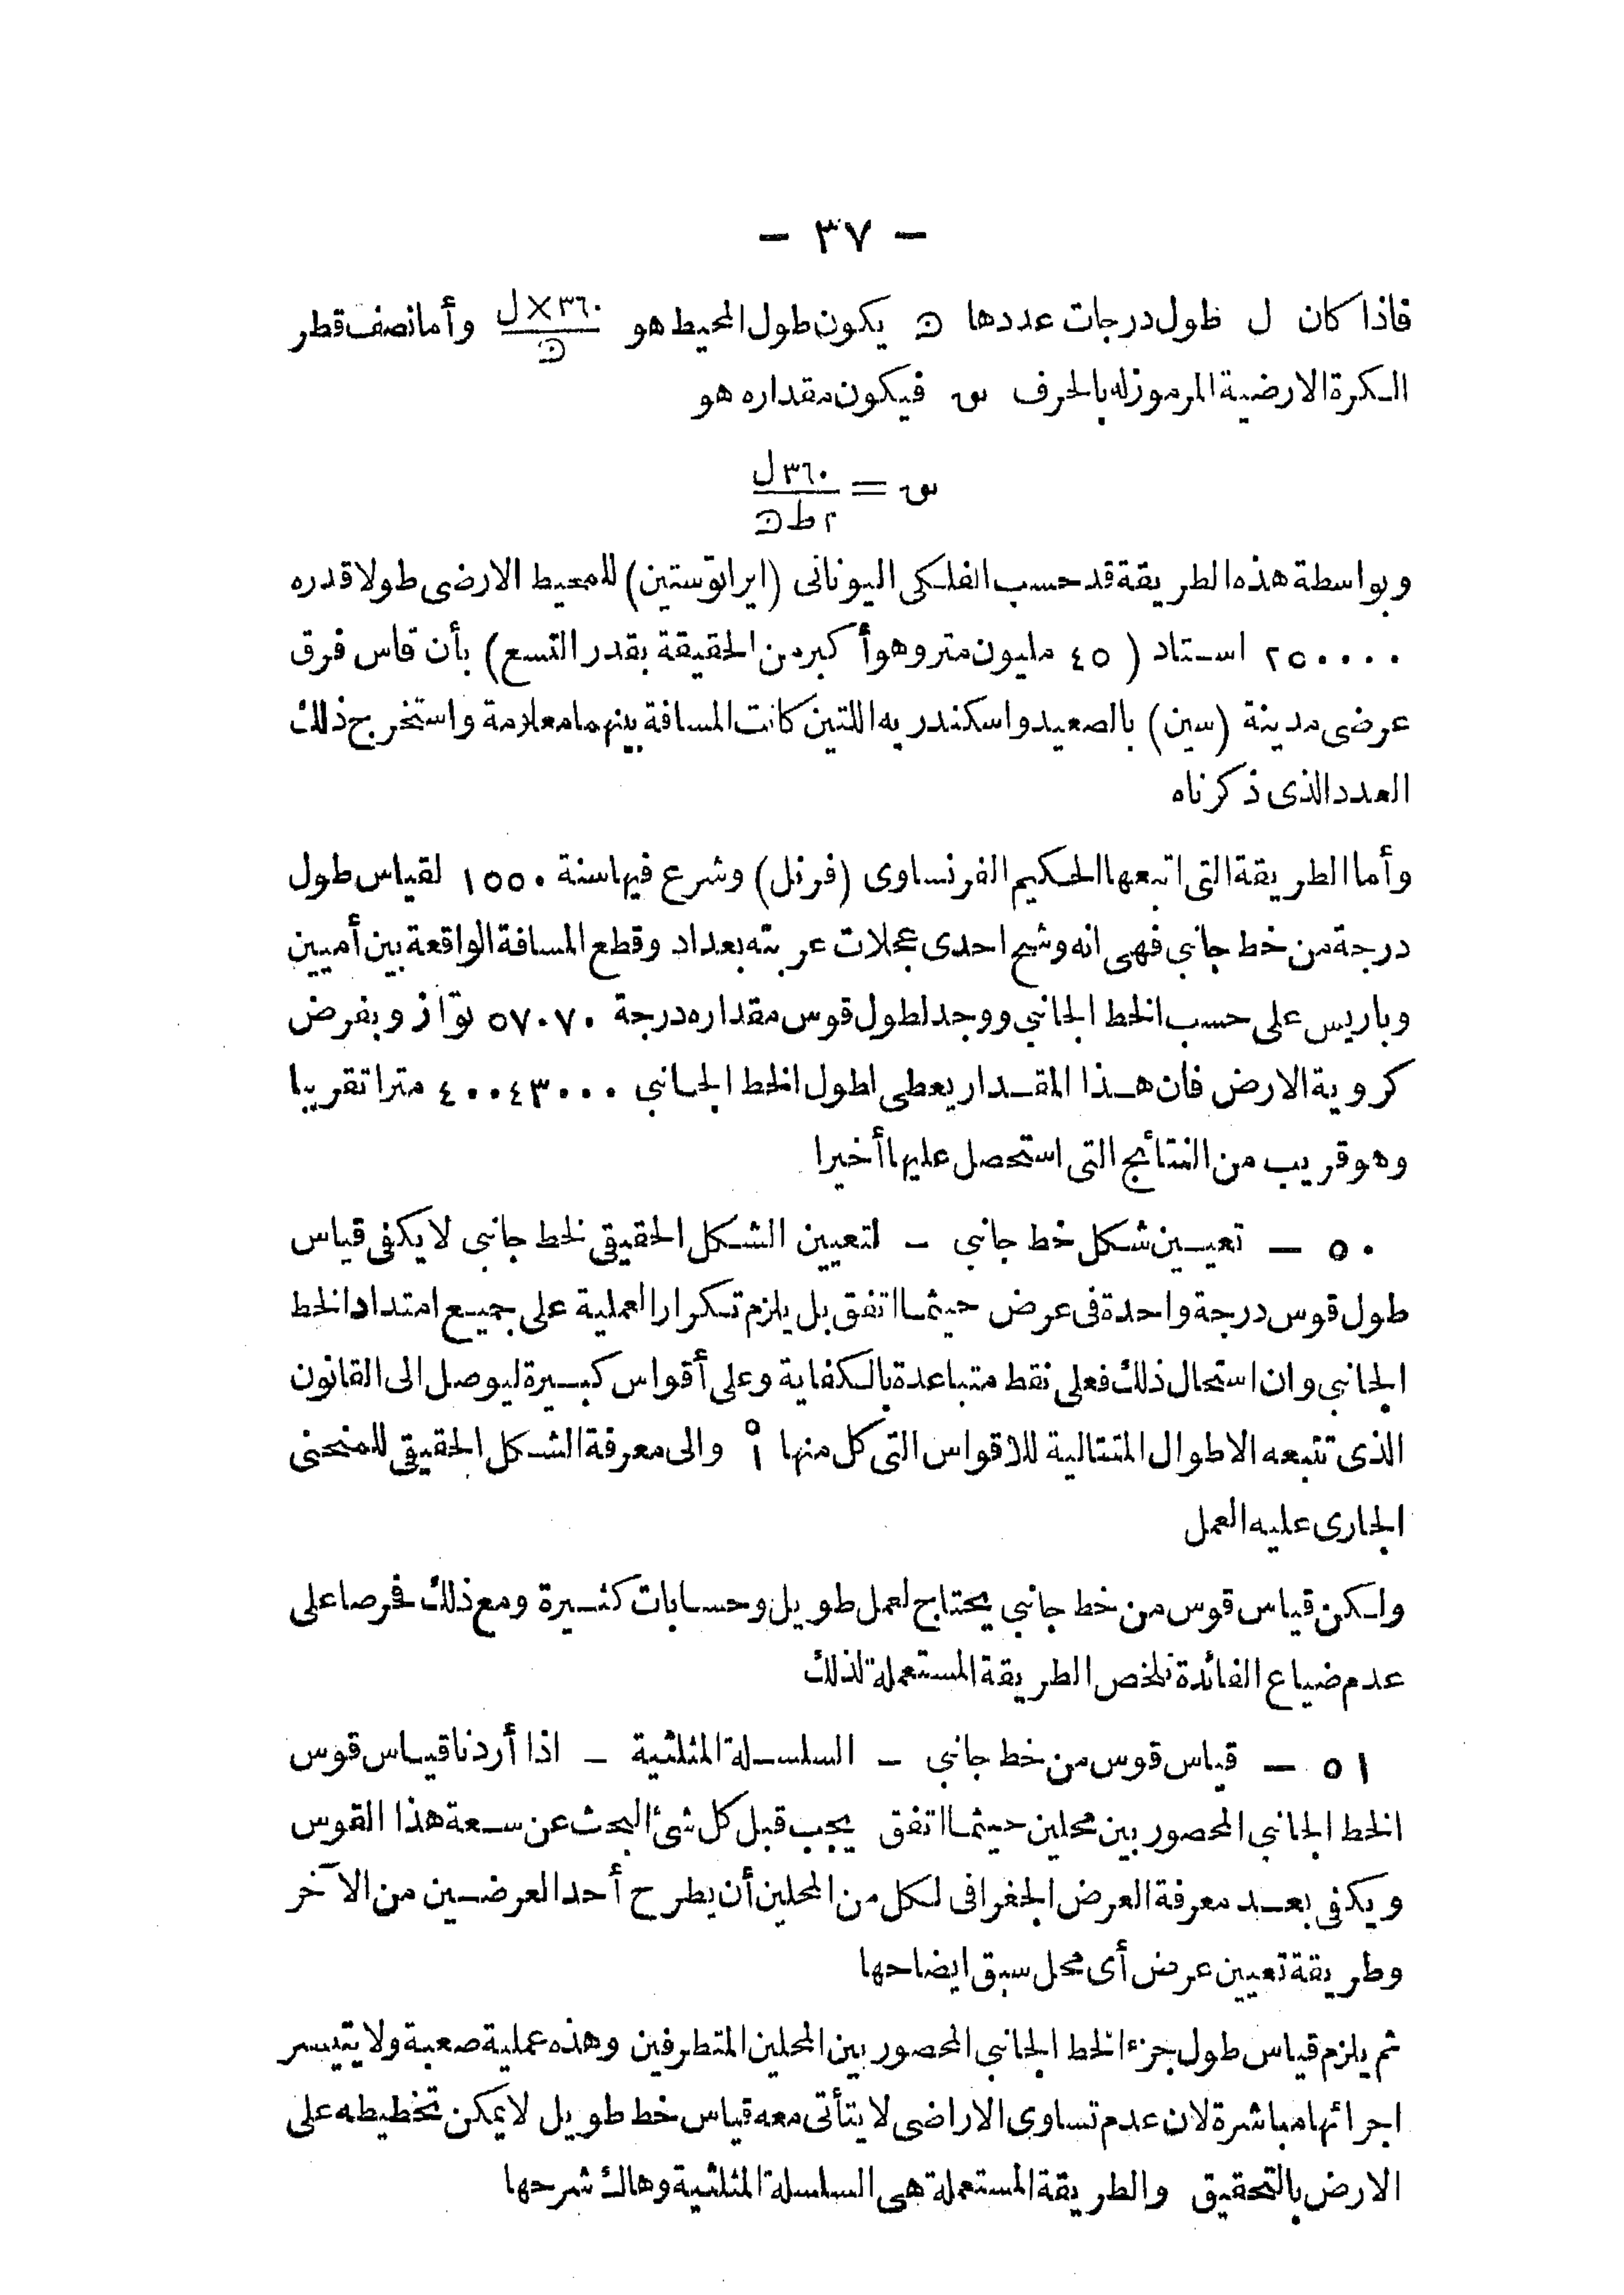 - ٣٧ -
فاذا كان ل طول درجات عددها ن يكون طول المحيط هو ٣٦٠×ل / ن وأما نصف قطر
الكرة الارضية المرموز له بالحرف س فيكون مقداره هو
س = ٣٦٠ ل / ٢ ط ن
وبواسطة هذه الطريقة قد حسب الفلكى اليونانى (ايراتوستين) للمحيط الارضى طولا قدره
٢٥٠٠٠٠ استاد (٤٥ مليون متر وهو أكبر من الحقيقة بقدر التسع) بأن قاس فرق
عرضى مدينة (سين) بالصعيد واسكندريه اللتين كانت المسافة بينهما معلومة واستخرج ذلك
العدد الذى ذكرناه
وأما الطريقة التى اتبعها الحكيم الفرنساوى (فرنل) وشرع فيها سنة ١٥٥٠ لقياس طول
درجة من خط جانبي فهى انه وشح احدى عجلات عربته بعداد وقطع المسافة الواقعة بين أميين
وباريس على حسب الخط الجانبي ووجد لطول قوس مقداره درجة ٥٧٠٧٠ تواز وبفرض
كروية الارض فان هذا المقدار يعطى لطول الخط الجانبي ٤٠٠٤٣٠٠٠ مترا تقريبا
وهو قريب من النتائج التى استحصل عليها أخيرا
٥٠ - تعيين شكل خط جانبي - لتعيين الشكل الحقيقى لخط جانبى لا يكفى قياس
طول قوس درجة واحدة فى عرض حيثما اتفق بل يلزم تكرار العملية على جميع امتداد الخط
الجانبي وان استحال ذلك فعلى نقط متباعدة بالكفاية وعلى أقواس كبيرة ليوصل الى القانون
الذى تتبعه الاطوال المتتالية للاقواس التى كل منها ْ١ والى معرفة الشكل الحقيقى للمنحنى
الجارى عليه العمل
ولكن قياس قوس من خط جانبي يحتاج لعمل طويل وحسابات كثيرة ومع ذلك فحرصا على
عدم ضياع الفائدة نلخص الطريقة المستعملة لذلك
٥١ - قياس قوس من خط جانبي - السلسلة المثلثية - اذا أردنا قياس قوس
الخط الجانبي المحصور بين محلين حيثما اتفق يجب قبل كل شئ البحث عن سعة هذا القوس
ويكفى بعد معرفة العرض الجغرافى لكل من المحلين أن يطرح أحد العرضين من الآخر
وطريقة تعيين عرض أى محل سبق ايضاحها
ثم يلزم قياس طول جزء الخط الجانبي المحصور بين المحلين المتطرفين وهذه عملية صعبة ولا يتيسر
اجرائها مباشرة لان عدم تساوى الاراضى لا يتأتى معه قياس خط طويل لا يمكن تخطيطه على
الارض بالتحقيق والطريقة المستعملة هى السلسلة المثلثية وهاك شرحها